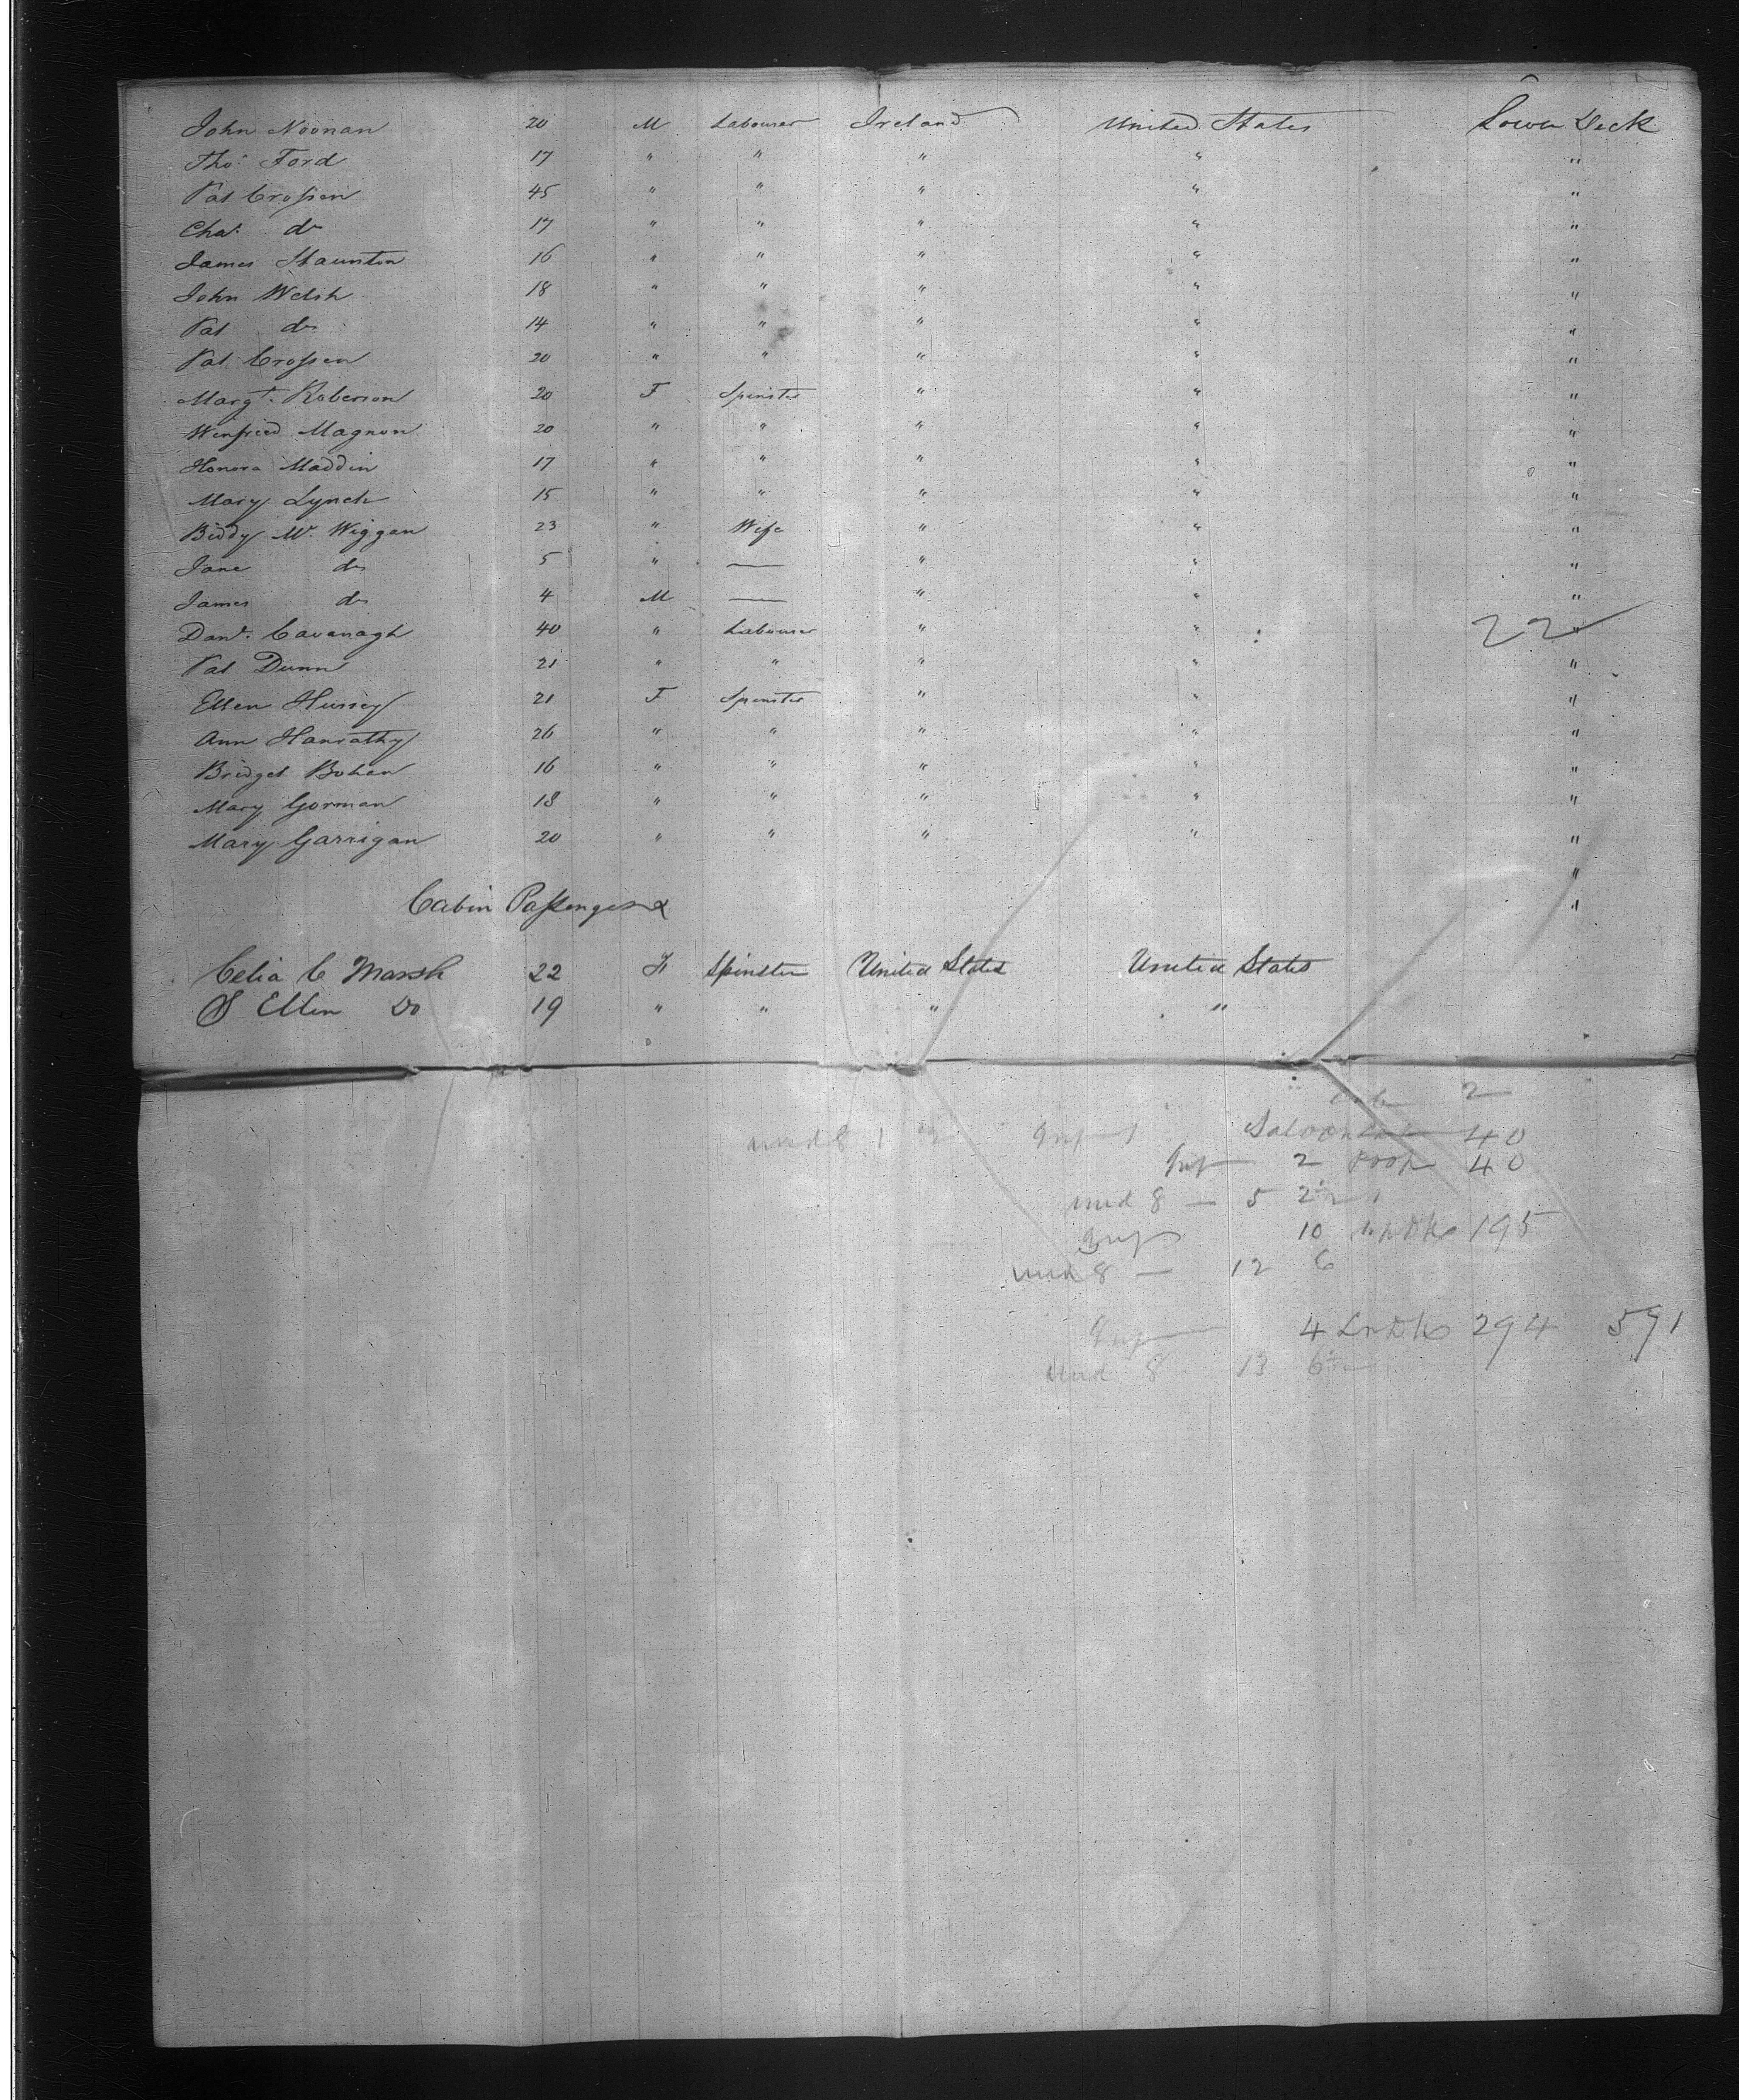 John Noonan 20 M Labourer Ireland United States Lower Deck
Thos Ford 17 " " " " "
Pat Crossen 45 " " " " "
Chas do 17 " " " " "
James Staunton 16 " " " " "
John Welsh 18 " " " " "
Pat do 14 " " " " "
Pat Crossen 20 " " " " "
Margt. Roberson 20 F Spinster " " "
Winfried Magnon 20 " " " " "
Honora Maddin 17 " " " " "
Mary Lynch 15 " " " " "
Biddy Mc Wiggan 23 " Wife " " "
Jane do 5 " — " " "
James do 4 M — " " "
Danl. Cavanagh 40 " Labourer " " " 22
Pat Dunn 21 " " " " "
Ellen Hussey 21 F Spinster " " "
Ann Hanrathy 26 " " " " "
Bridget Bohan 16 " " " " "
Mary Gorman 18 " " " " "
Mary Garrigan 20 " " " " "
"
Cabin Passengers "
Celia C Marsh 22 F Spinster United States United States
S Ellen Do 19 " " " "
2
und 8 1 Inf 1 Saloon 40
Inf 2 Poop 40
und 8 — 5 2
Inf 10 UpDk 195
und 8 — 12 6
Inf 4 LrDk 294 591
und 8 13 6